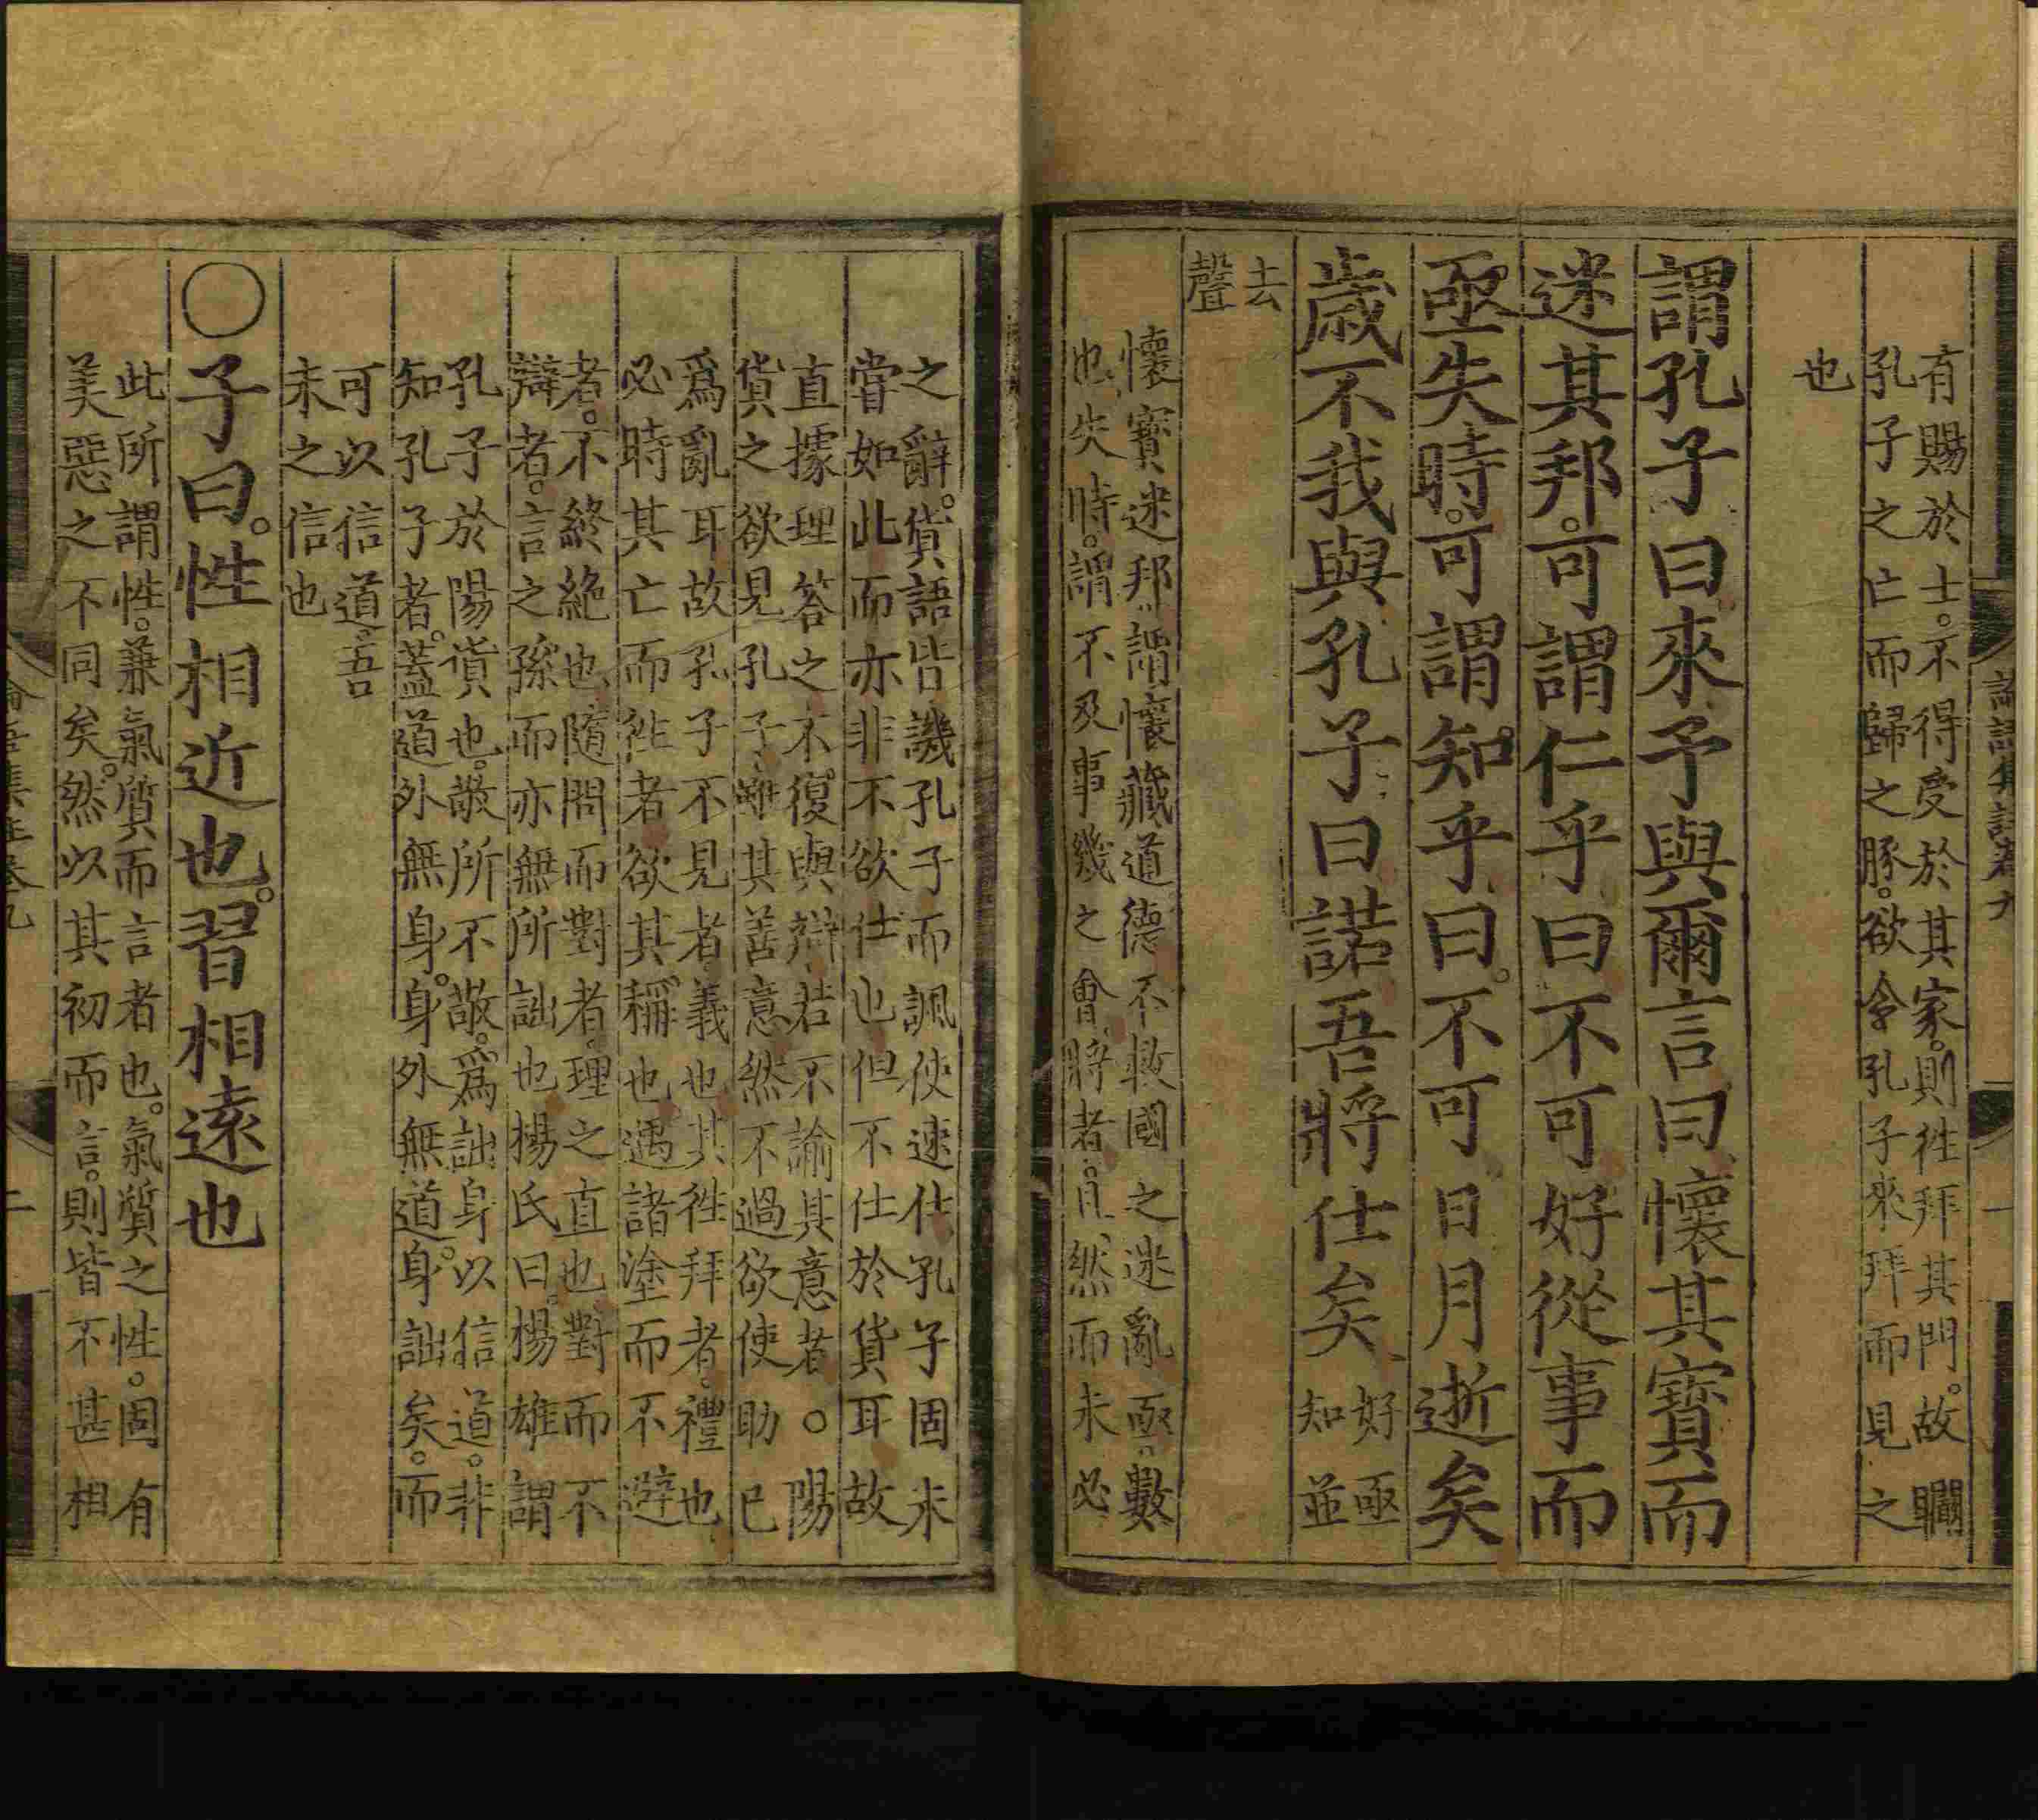 有賜於士。不得受於其家。則徃拜其門。故矙
孔子之亡而歸之豚。欲令孔子來拜而見之
也
謂孔子曰來予與爾言曰懷其寶而
迷其邦。可謂仁乎曰不可好從事而
亟失時。可謂知乎曰。不可日月逝矣
歲不我與孔子曰諾吾將仕矣
好亟
知並
去
聲
懷寶迷邦謂懷藏道德不救國之迷亂亟。數
也失時。謂不及事幾之會將者。且然而未必
之辭。貨語皆譏孔子而諷使速仕孔子固未
嘗如此而亦非不欲仕也但不仕於貨耳故
直據理答之不復與辯若不諭其意者○陽
貨之欲見孔子雖其善意然不過欲使助已
爲亂耳故孔子不見者義也其徃拜者。禮也
必時其亡而徃者欲其稱也遇諸塗而不避
者。不終絶也隨問而對者。理之直也對而不
辯者。言之孫而亦無所詘也楊氏曰。楊雄謂
孔子於陽貨也。敬所不敬。爲詘身以信道。非
知孔子者。蓋道外無身。身外無道。身詘矣。而
可以信道。吾
未之信也
○子曰。性相近也。習相遠也
此所謂性。兼氣質而言者也。氣質之性。固有
美惡之不同矣。然以其初而言。則皆不甚相
二